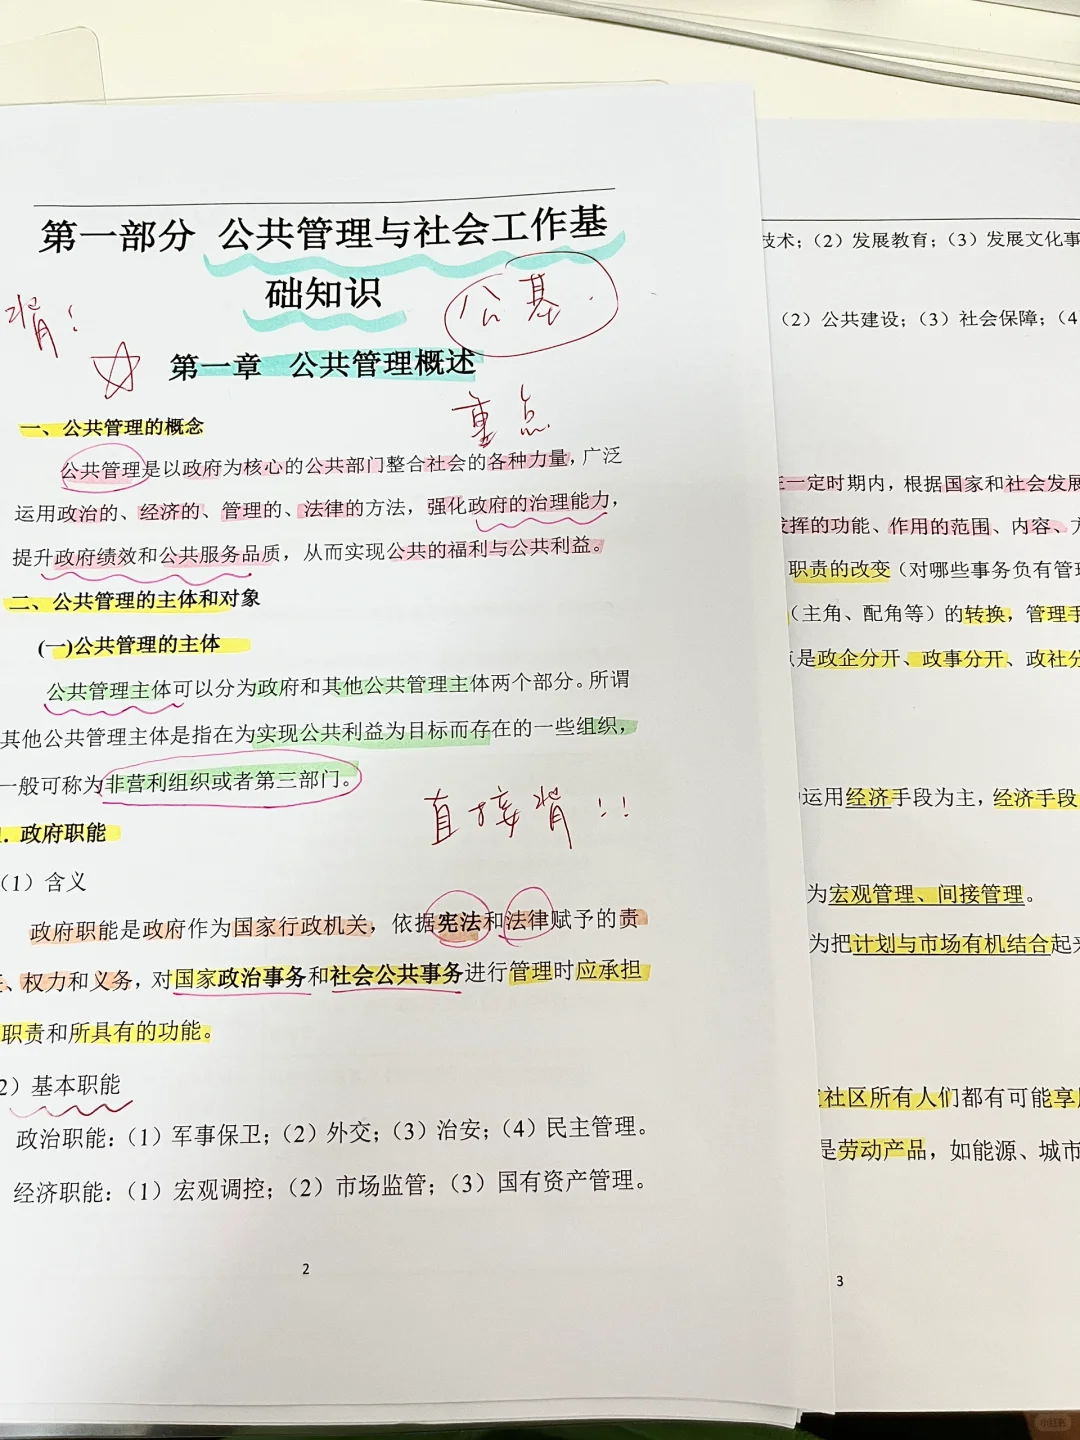 第一部分 公共管理与社会工作基
础知识
背！
公基
第一章 公共管理概述
重点
一、公共管理的概念
公共管理是以政府为核心的公共部门整合社会的各种力量，广泛
运用政治的、经济的、管理的、法律的方法，强化政府的治理能力，
提升政府绩效和公共服务品质，从而实现公共的福利与公共利益。
二、公共管理的主体和对象
(一)公共管理的主体
公共管理主体可以分为政府和其他公共管理主体两个部分。所谓
其他公共管理主体是指在为实现公共利益为目标而存在的一些组织，
一般可称为非营利组织或者第三部门。
直接背！！
. 政府职能
（1）含义
政府职能是政府作为国家行政机关，依据宪法和法律赋予的责
、权力和义务，对国家政治事务和社会公共事务进行管理时应承担
职责和所具有的功能。
2）基本职能
政治职能：（1）军事保卫；（2）外交；（3）治安；（4）民主管理。
经济职能：（1）宏观调控；（2）市场监管；（3）国有资产管理。
2
技术；（2）发展教育；（3）发展文化事
（2）公共建设；（3）社会保障；（4
一定时期内，根据国家和社会发展
发挥的功能、作用的范围、内容、方
职责的改变（对哪些事务负有管理
（主角、配角等）的转换，管理手
点是政企分开、政事分开、政社分
运用经济手段为主，经济手段
为宏观管理、间接管理。
为把计划与市场有机结合起来
社区所有人们都有可能享用
是劳动产品，如能源、城市
3
小红书